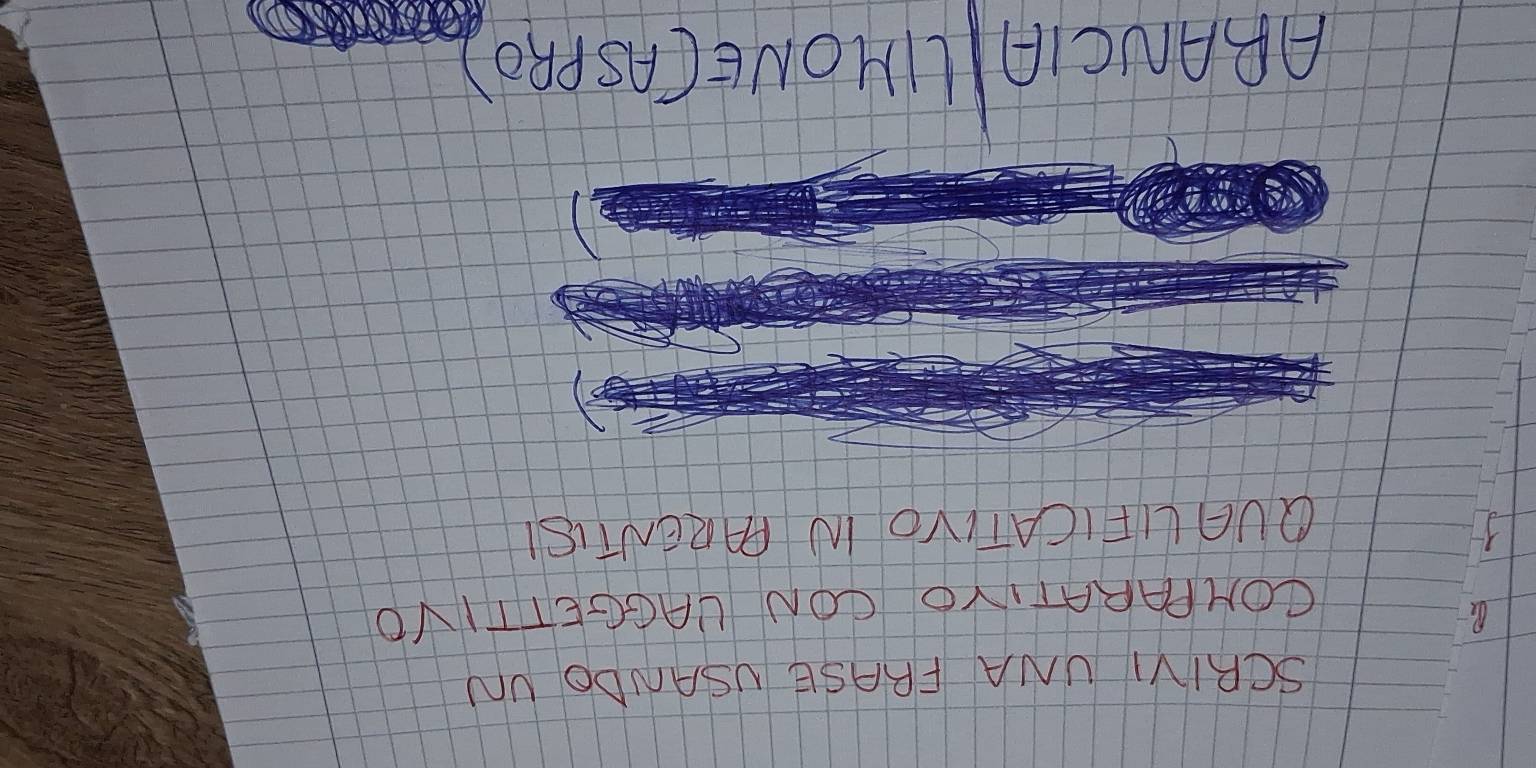 SCRIVI UNA FRASE USANDO UN
COMPARATIVO CON L'AGGETTIVO
QUALIFICATIVO IN PARENTISI
ARANCIA/LIMONE(ASPRO)